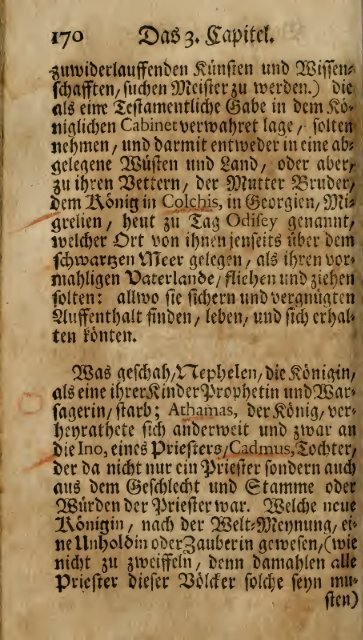 170 Das 3. Capitel.
zuwiderlauffenden Künsten und Wissen-
schafften, suchen Meister zu werden.) die
als eine Testamentliche Gabe in dem Kö-
niglichen Cabinet verwahret lage, solten
nehmen, und darmit entweder in eine ab-
gelegene Wüsten und Land, oder aber,
zu ihren Vettern, der Mutter Bruder,
dem König in Colchis, in Georgien, Mi-
grelien, heut zu Tag Odisey genannt,
welcher Ort von ihnen jenseits über dem
schwartzen Meer gelegen, als ihren vor-
mahligen Vaterlande, fliehen und ziehen
solten: allwo sie sichern und vergnügten
Auffenthalt finden, leben, und sich erhal-
ten könten.
Was geschah, Nephelen, die Königin,
als eine ihrer Kinder Prophetin und War-
sagerin, starb; Athamas, der König, ver-
heyrathete sich anderweit und zwar an
die Ino, eines Priesters, Cadmus, Tochter,
der da nicht nur ein Priester sondern auch
aus dem Geschlecht und Stamme oder
Würden der Priester war. Welche neue
Königin, nach der Welt-Meynung, ei-
ne Unholdin oder Zauberin gewesen, (wie
nicht zu zweiffeln, denn damahlen alle
Priester dieser Völcker solche seyn mu-
sten)